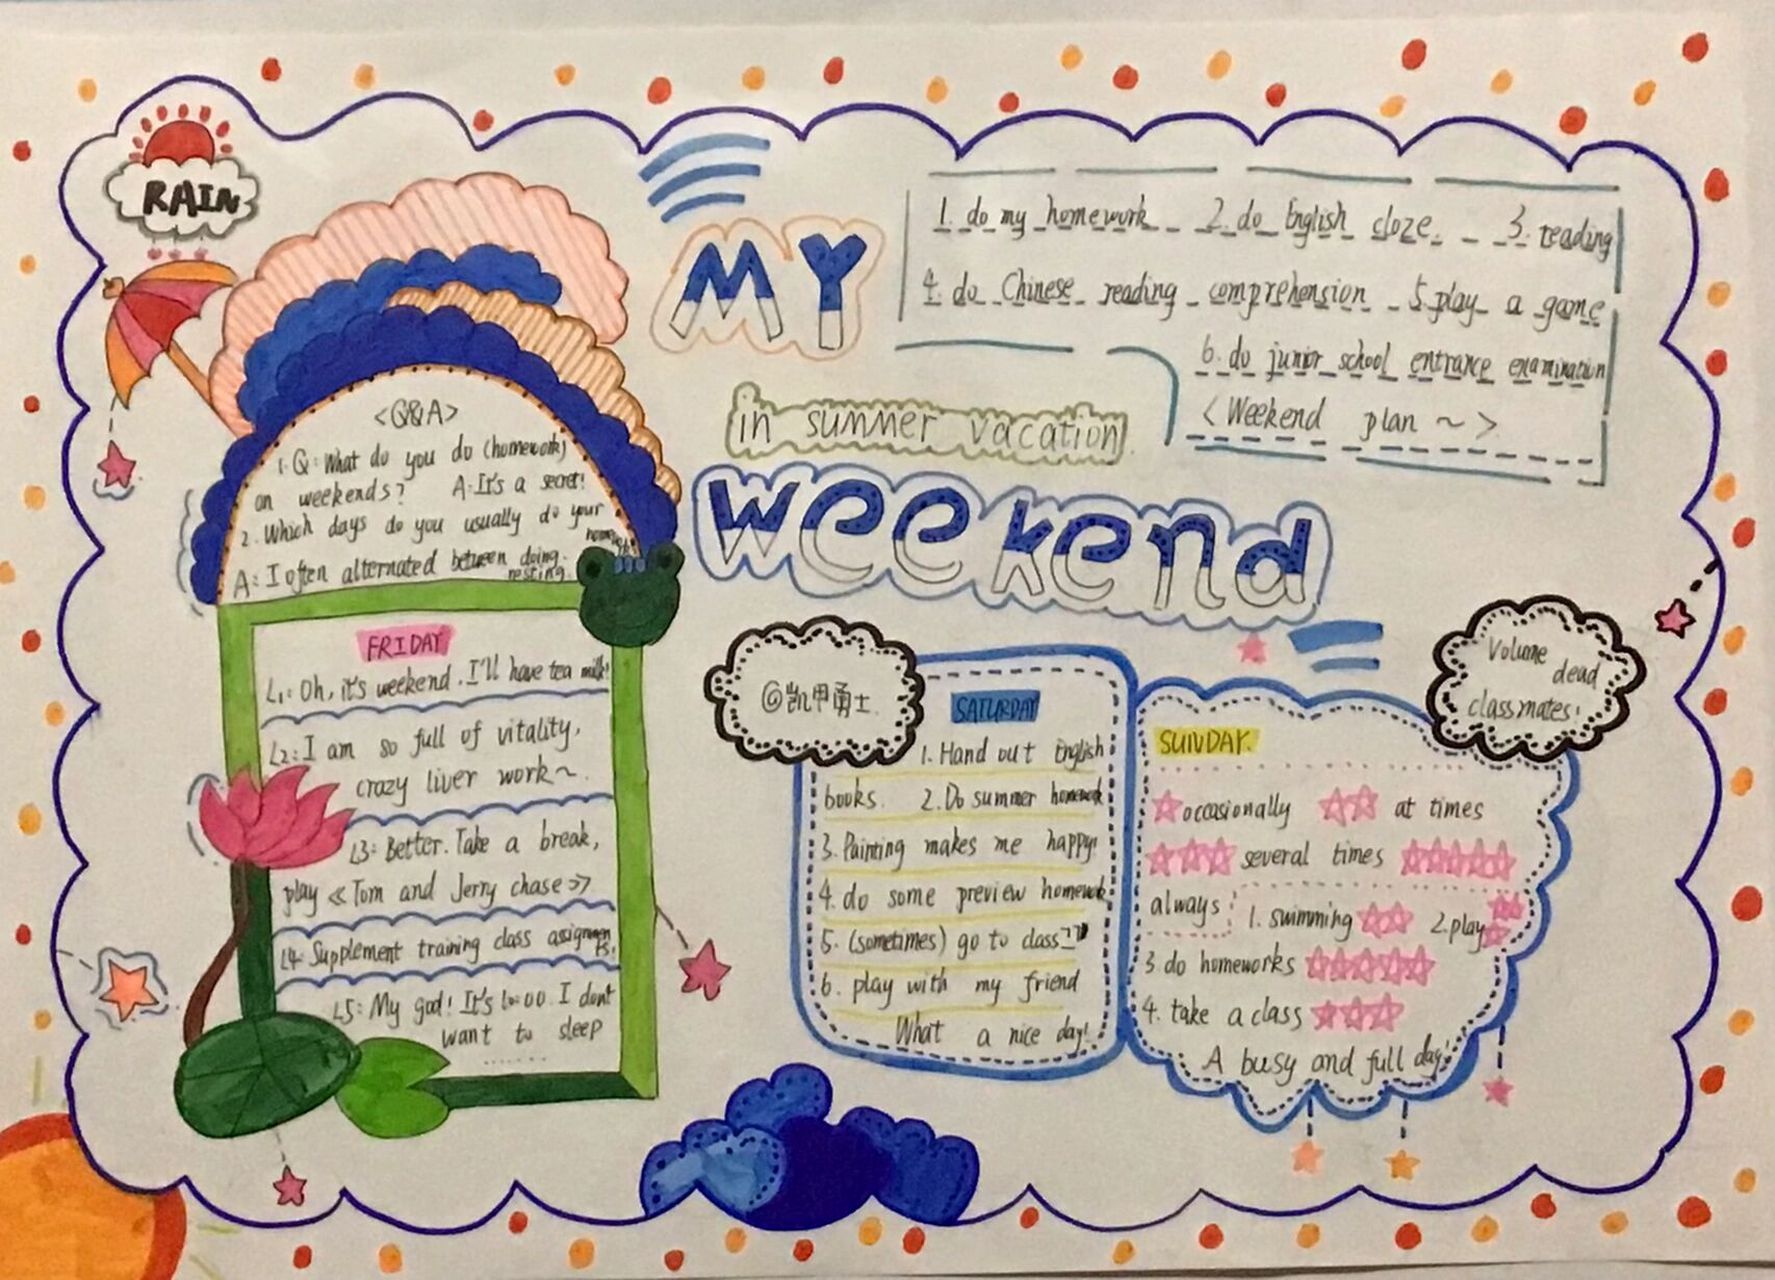 RAIN
MY
in summer vacation
weekend
1. do my homework 2. do English cloze. 3. reading
4. do Chinese reading comprehension 5. play a game
6. do junior school entrance examination
<Weekend plan ~>
<Q&A>
1. Q: What do you do (homework)
on weekends? A: It's a secret!
2. Which days do you usually do your
homework
A: I often alternated between doing.
resting.
FRIDAY
L1: Oh, it's weekend. I'll have tea milk!
L2: I am so full of vitality,
crazy liver work~.
L3: Better. Take a break,
play «Tom and Jerry chase»
L4: Supplement training class assignmen
ts!
L5: My god! It's I dont
want to sleep
......
@凯甲勇士.
SATURDAY
1. Hand out English
books. 2. Do summer homework
3. Painting makes me happy!
4. do some preview homework
5. (sometimes) go to class
6. play with my friend
What a nice day!
Volume
dead
classmates!
SUNDAY.
☆occasionally ☆☆ at times
☆☆☆ several times ☆☆☆☆☆
always
1. swimming ☆☆ 2. play ☆☆☆
3 do homeworks ☆☆☆☆☆
4. take a class ☆☆☆
A busy and full day!